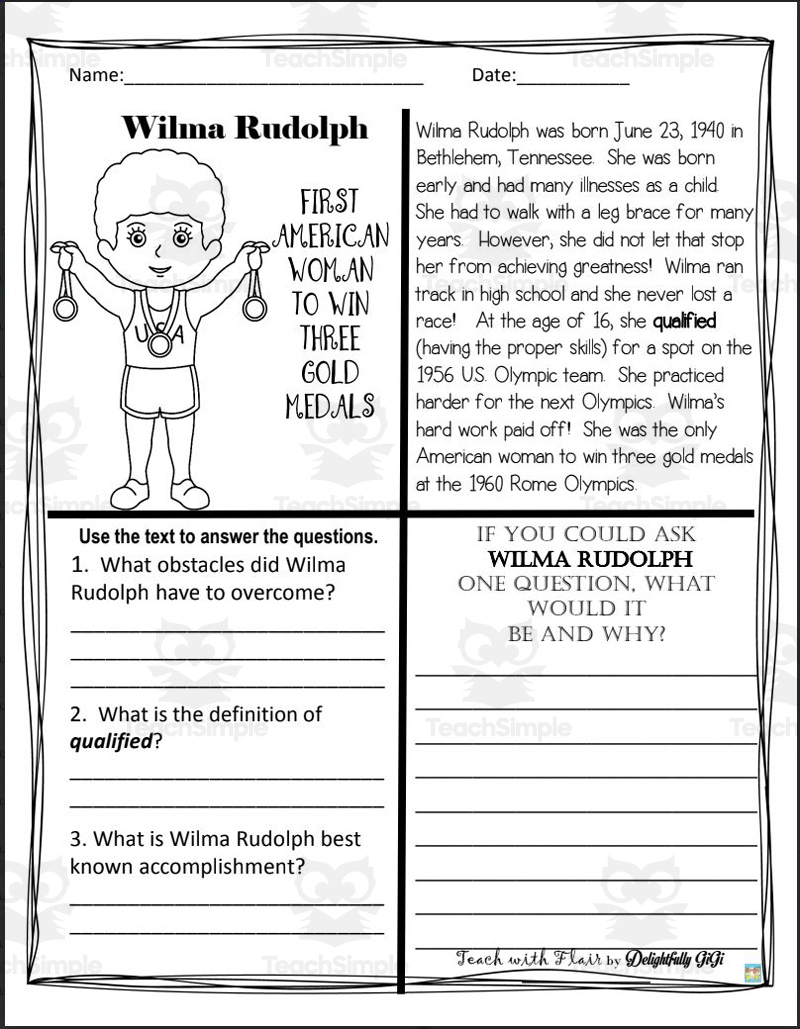 Name:______________________________ Date:___________
Wilma Rudolph
FIRST
AMERICAN
WOMAN
TO WIN
THREE
GOLD
MEDALS
USA
Wilma Rudolph was born June 23, 1940 in
Bethlehem, Tennessee. She was born
early and had many illnesses as a child.
She had to walk with a leg brace for many
years. However, she did not let that stop
her from achieving greatness! Wilma ran
track in high school and she never lost a
race! At the age of 16, she qualified
(having the proper skills) for a spot on the
1956 U.S. Olympic team. She practiced
harder for the next Olympics. Wilma's
hard work paid off! She was the only
American woman to win three gold medals
at the 1960 Rome Olympics.
Use the text to answer the questions.
1. What obstacles did Wilma
Rudolph have to overcome?
2. What is the definition of
qualified?
3. What is Wilma Rudolph best
known accomplishment?
IF YOU COULD ASK
WILMA RUDOLPH
ONE QUESTION, WHAT
WOULD IT
BE AND WHY?
Teach with Flair by Delightfully GiGi
TeachSimple